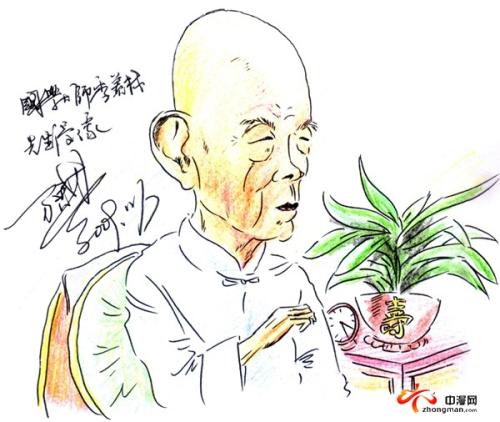 國學大師季羡林
先生漫像
2009.
壽
中漫网
zhongman.com